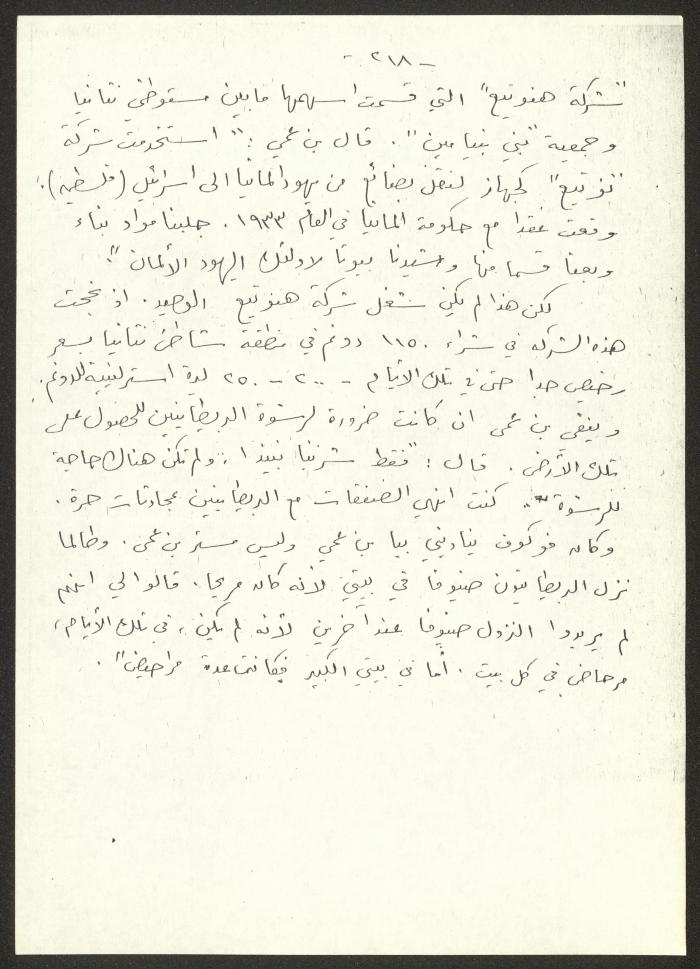 - ٢١٨ -
"شركة هنوتيع" التي قسمت اسهمها ما بين مستوطني نتانيا
وجمعية "بني بنيامين". قال بن عمي : "استخدمت شركة
"نوتيع" كجهاز لنقل بضائع من يهود المانيا الى اسرائيل (فلسطين).
وقعت عقدا مع حكومة المانيا في العام ١٩٣٣. جلبنا مواد بناء
وبعنا قسما منها وشيدنا بيوتا لاولئك اليهود الألمان".
لكن هذا لم يكن شغل شركة هنوتيع الوحيد. اذ نجحت
هذه الشركة في شراء ١١٥٠ دونم في منطقة شاطئ نتانيا بسعر
رخيص جدا حتى في تلك الأيام - ٢٠٠ - ٢٥٠ ليرة استرلينية للدونم.
وينفي بن عمي ان كانت ضرورة لرشوة البريطانيين للحصول على
تلك الأرض. قال : "فقط شربنا نبيذا، ولم تكن هناك حاجة
للرشوة". كنت انهي الصفقات مع البريطانيين بمحادثات حرة.
وكان فوكوف يناديني بيا بن عمي وليس مستر بن عمي. وطالما
نزل البريطانيون ضيوفا في بيتي لأنه كان مريحا. قالوا لي انهم
لم يريدوا النزول ضيوفا عند آخرين لأنه لم يكن، في تلك الأيام،
مرحاض في كل بيت. أما في بيتي الكبير فكانت عدة مراحيض".